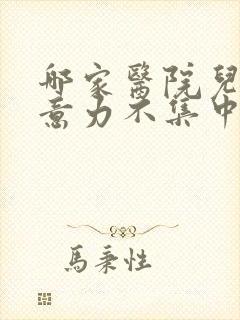 哪家醫院兒
意力不集中
馬秉性